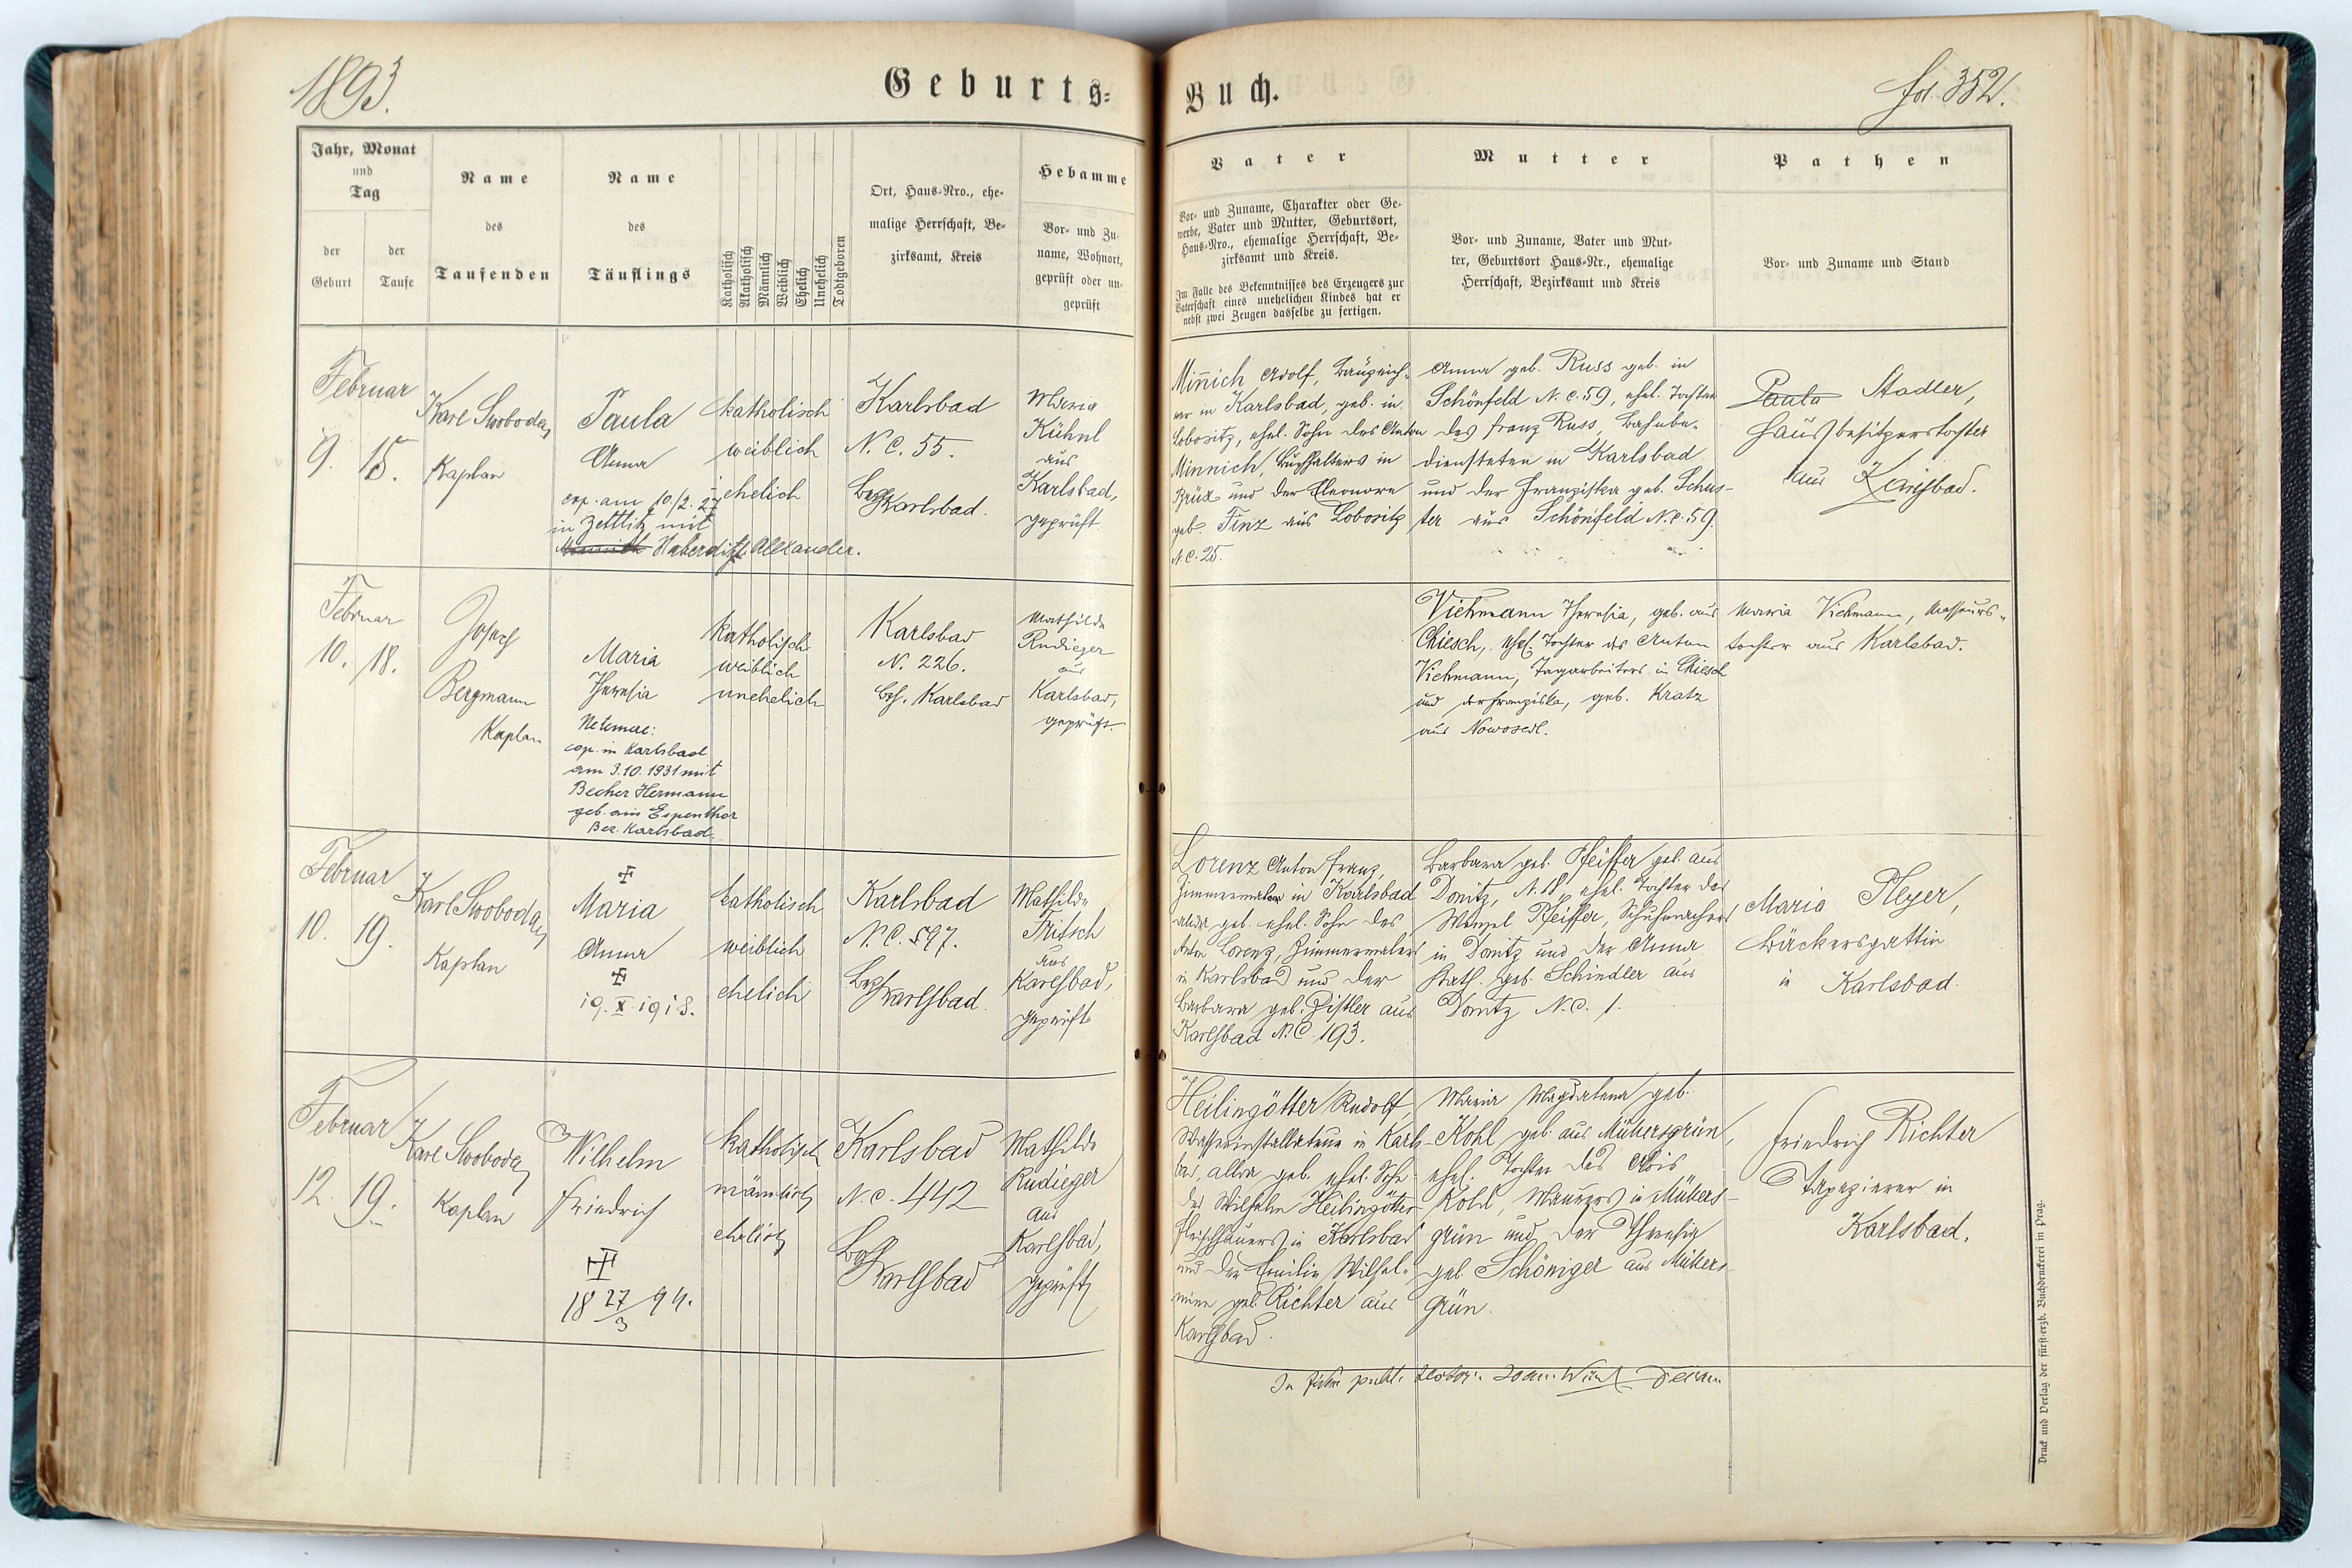 1893.
Geburts-
Buch.
fol. 352.
Jahr, Monat
und
Tag
der
Geburt
der
Taufe
Name
des
Taufenden
Name
des
Täuflings
Katholisch
Akatholisch
Männlich
Weiblich
Ehelich
Unehelich
Todtgeboren
Ort, Haus-Nro., ehe-
malige Herrschaft, Be-
zirksamt, Kreis
Hebamme
Vor- und Zu-
name, Wohnort,
geprüft oder un-
geprüft
Vater
Vor- und Zuname, Charakter oder Ge-
werbe, Vater und Mutter, Geburtsort,
Haus-Nro., ehemalige Herrschaft, Be-
zirksamt und Kreis.
Im Falle des Bekenntnisses des Erzeugers zur
Vaterschaft eines unehelichen Kindes hat er
nebst zwei Zeugen dasselbe zu fertigen.
Mutter
Vor- und Zuname, Vater und Mut-
ter, Geburtsort Haus-Nr., ehemalige
Herrschaft, Bezirksamt und Kreis
Pathen
Vor- und Zuname und Stand
Februar
9. 15.
Karl Swoboda,
Kaplan
Paula
Anna
cop. am 10/2. 27
in Zettlitz mit
Haberditzl Alexander.
katholisch
weiblich
ehelich
Karlsbad
N. C. 55.
Bez. Karlsbad.
Maria
Kühnl
aus
Karlsbad,
geprüft
Minnich Adolf, Bauzeich-
ner in Karlsbad, geb. in
Lobositz, ehel. Sohn des Anton
Minnich, Buchhalters in
Brüx und der Eleonore
geb. Finz aus Lobositz
N.C. 25.
Anna geb. Russ geb. in
Schönfeld N.C. 59, ehel. Tochter
des Franz Russ, Bahnbe-
diensteten in Karlsbad
und der Franziska geb. Schus-
ter aus Schönfeld N.C. 59.
Paula Stadler,
Hausbesitzerstochter
aus Karlsbad.
Februar
10. 18.
Josef
Bergmann
Kaplan
Maria
Theresia
cop. in Karlsbad
am 3.10.1931 mit
Becher Hermann
geb. am Espenthor
Bez. Karlsbad.
katholisch
weiblich
unehelich
Karlsbad
N. 226.
Bez. Karlsbad
Mathilde
Rudieger
aus
Karlsbad,
geprüft.
Viehmann Theresia, geb. aus
Chiesch, ehel. Tochter des Anton
Viehmann, Tagarbeiters in Chiesch
und der Franziska, geb. Kratz
aus Nowosedl.
Maria Viehmann, Masseurs-
tochter aus Karlsbad.
Februar
10. 19.
Karl Swoboda,
Kaplan
Maria
Anna
19. X. 1918.
katholisch
weiblich
ehelich
Karlsbad
N.C. 597.
Bez. Karlsbad.
Mathilde
Fritsch
aus
Karlsbad,
geprüft
Lorenz Anton Franz,
Zimmermaler in Karlsbad
allda geb. ehel. Sohn des
Anton Lorenz, Zimmermalers
in Karlsbad und der
Barbara geb. Zistler aus
Karlsbad N.C. 193.
Barbara geb. Pfeiffer geb. aus
Donitz, N. 18, ehel. Tochter des
Wenzel Pfeiffer, Schuhmachers
in Donitz und der Anna
Kath. geb. Schindler aus
Donitz N.C. 1.
Maria Pleyer,
Bäckersgattin
in Karlsbad.
Februar
12. 19.
Karl Swoboda,
Kaplan
Wilhelm
Friedrich
18 27/3 94.
katholisch
männlich
ehelich
Karlsbad
N.C. 442
Bez. Karlsbad
Mathilde
Rudieger
aus
Karlsbad,
geprüft
Heilingötter Rudolf,
Wasserinstallateur in Karls-
bad, allda geb. ehel. Sohn
des Wilhelm Heilingötter
Fleischhauers in Karlsbad
und der Emilie Wilhel-
mine geb. Richter aus
Karlsbad.
Maria Magdalena geb.
Kohl geb. aus Mühersgrün,
ehel. Tochter des Alois
Kohl, Maurers in Mühers-
grün und der Theresia
geb. Schöniger aus Mühers-
grün.
Friedrich Richter
Tapezierer in
Karlsbad.
Druck und Verlag der fürst-erzb. Buchdruckerei in Prag.